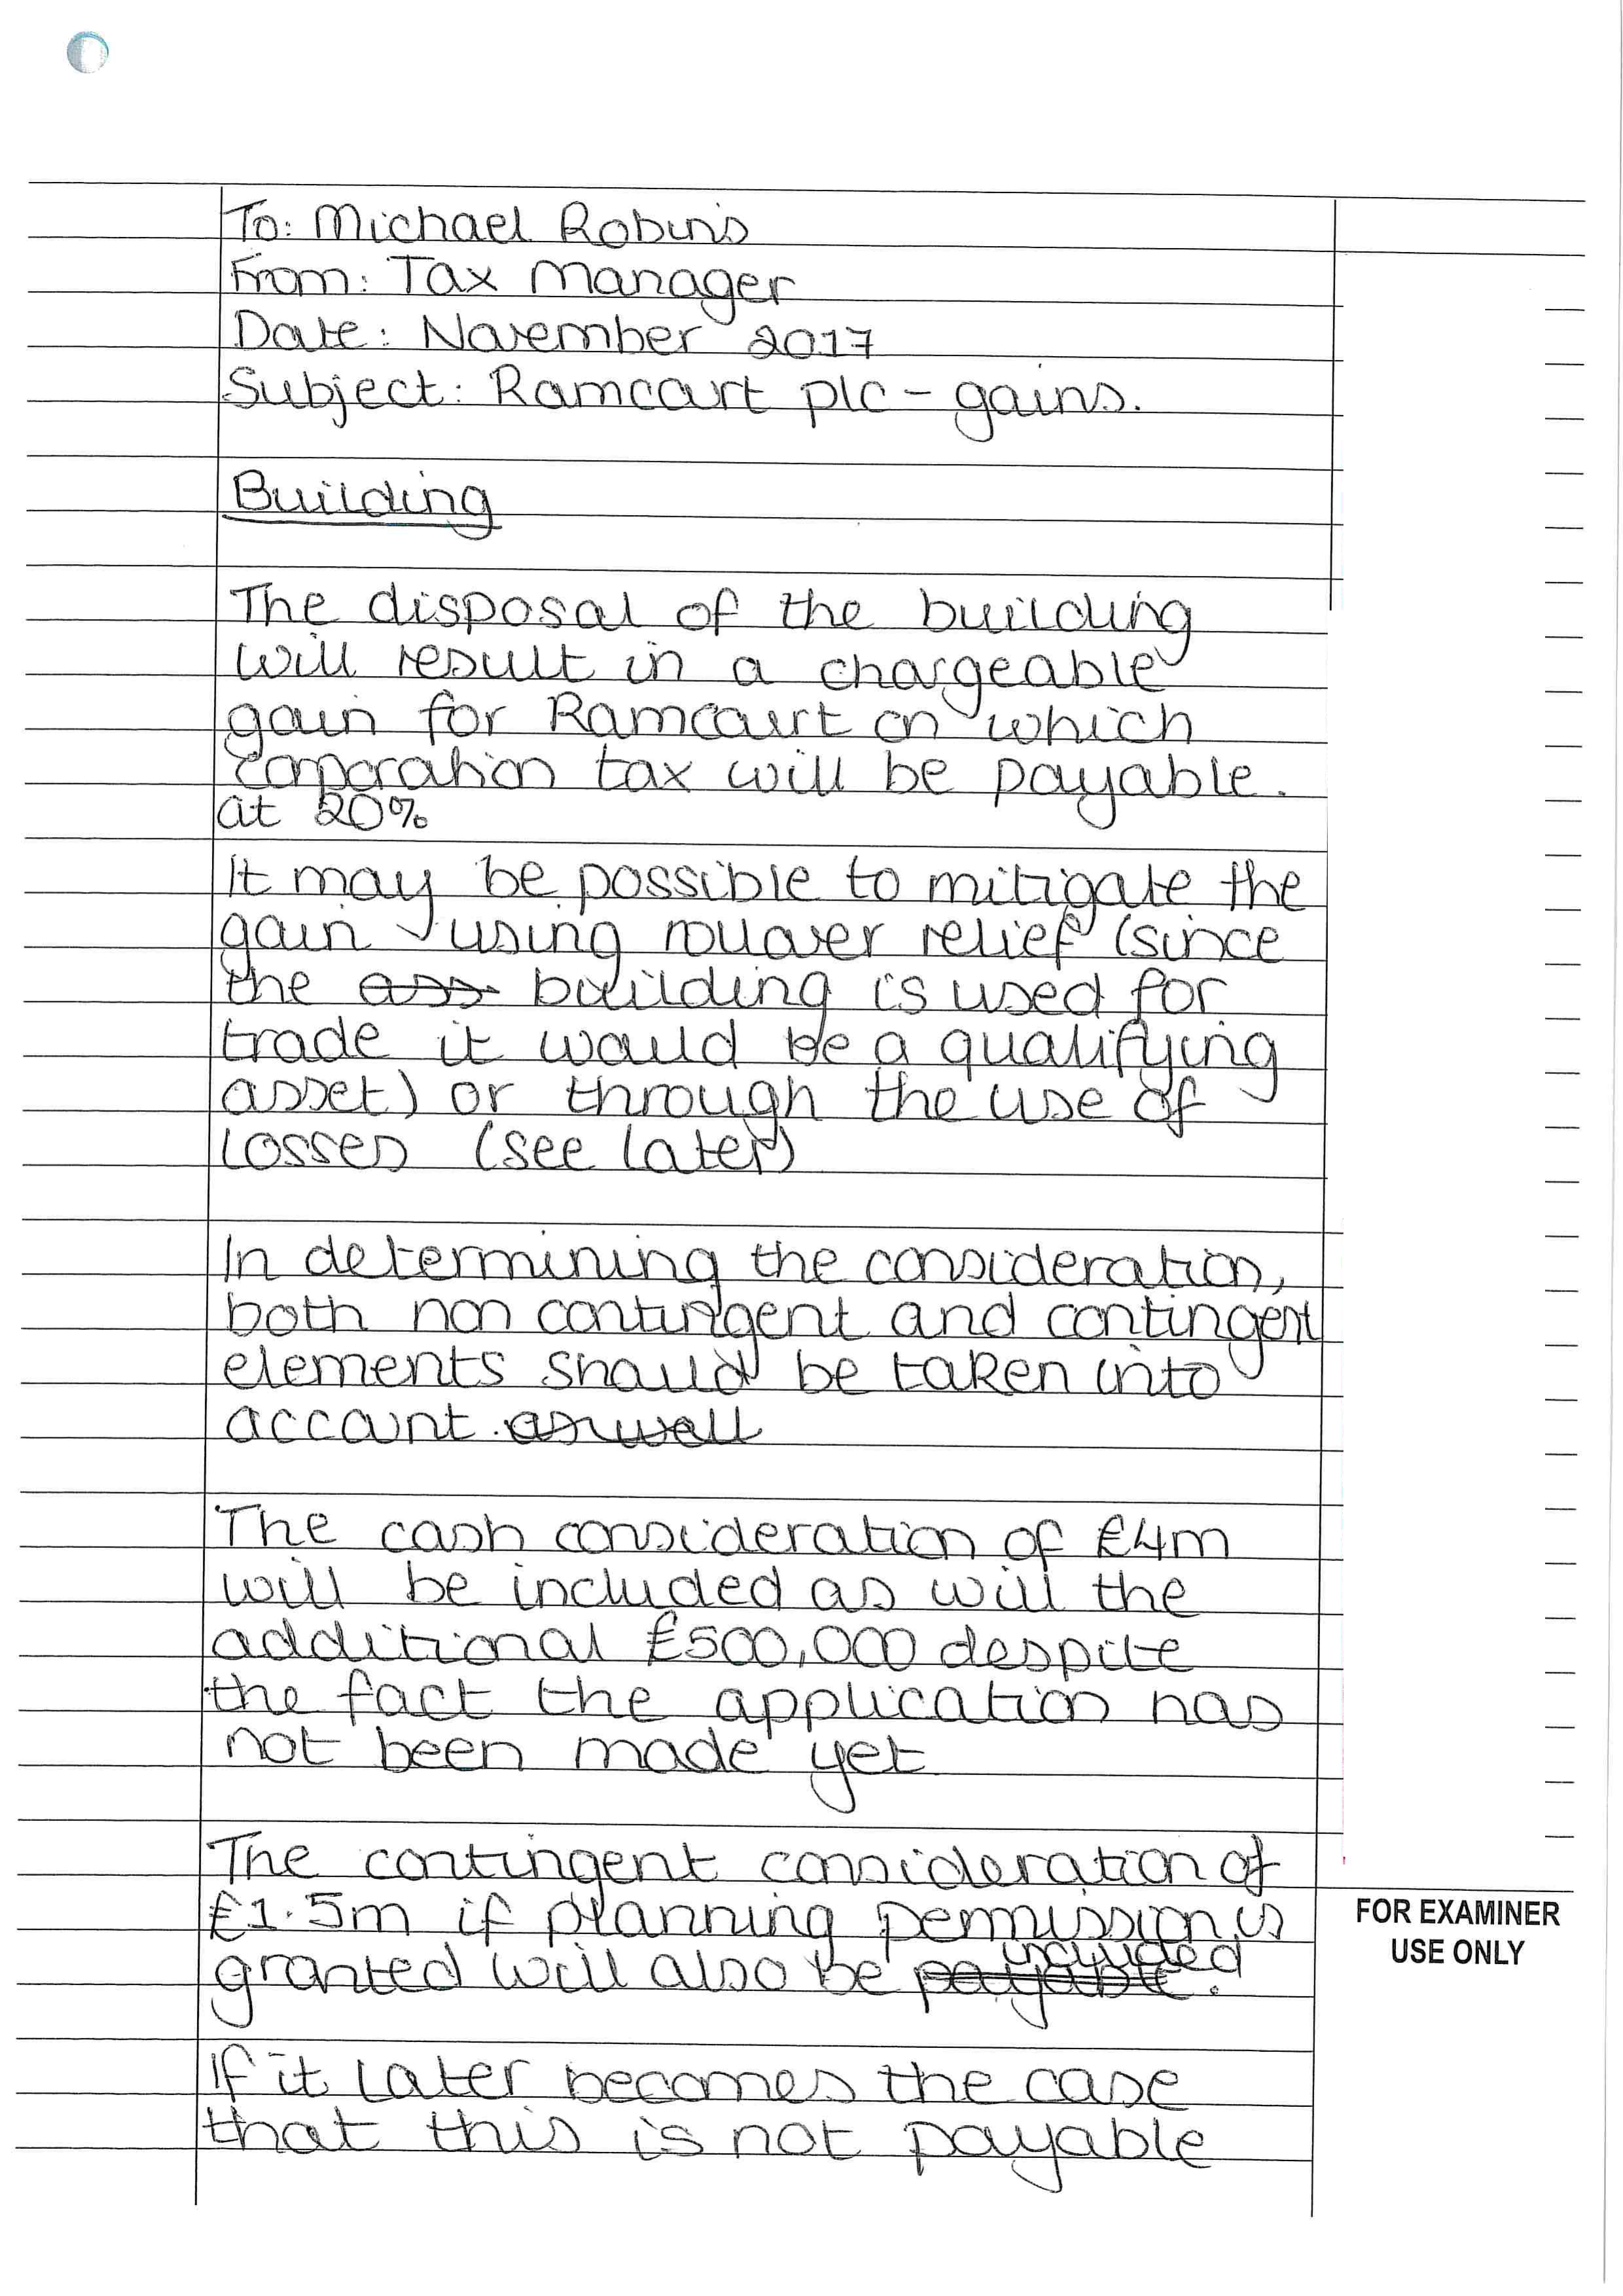 To: Michael Robins
From: Tax Manager
Date: November 2017
Subject: Ramcourt plc - gains.
Building
The disposal of the building
will result in a chargeable
gain for Ramcourt on which
corporation tax will be payable.
at 20%
It may be possible to mitigate the
gain using rollover relief (since
the ass building is used for
trade it would be a qualifying
asset) or through the use of
losses (see later)
In determining the consideration,
both non contingent and contingent
elements should be taken into
account. as well
The cash consideration of £4m
will be included as will the
additional £500,000 despite
the fact the application has
not been made yet
The contingent consideration of
£1.5m if planning permission is
included
granted will also be payable.
If it later becomes the case
that this is not payable
FOR EXAMINER
USE ONLY